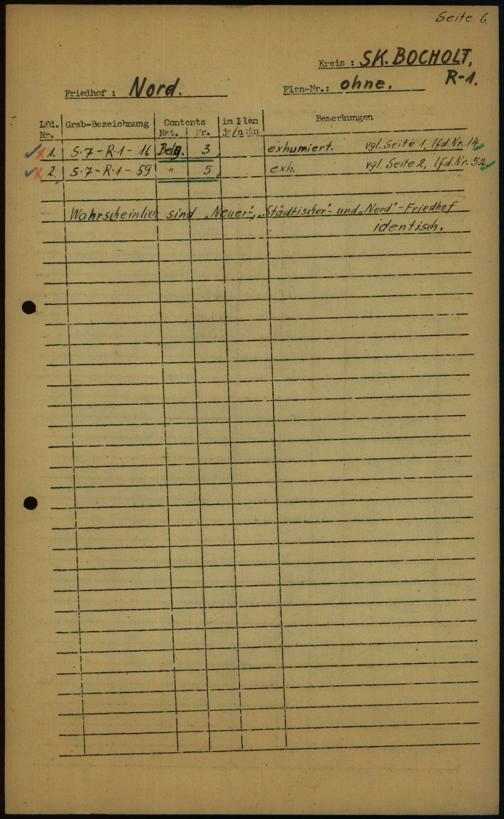 Seite 6.
Kreis : SK. BOCHOLT,
Friedhof : Nord. Plan-Nr.: ohne. R-1.
Lfd. Nr. Grab-Bezeichnung Contents Nat. Nr. im Plan Bemerkungen
1. S-7-R-1-16 Belg. 3 exhumiert. vgl. Seite 1, lfd. Nr. 14.
2. S-7-R-1-59 " 5 exh. vgl. Seite 2, lfd. Nr. 52
Wahrscheinlich sind „Neuer"-, „Städtischer"- und „Nord"-Friedhof
identisch.